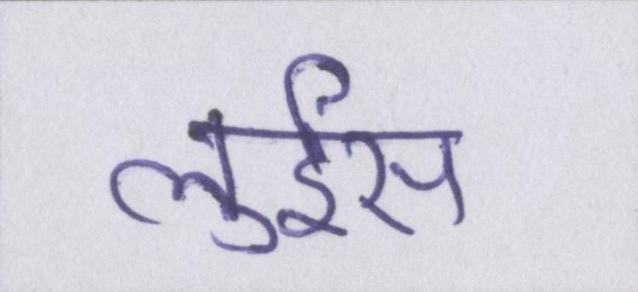 लुईस